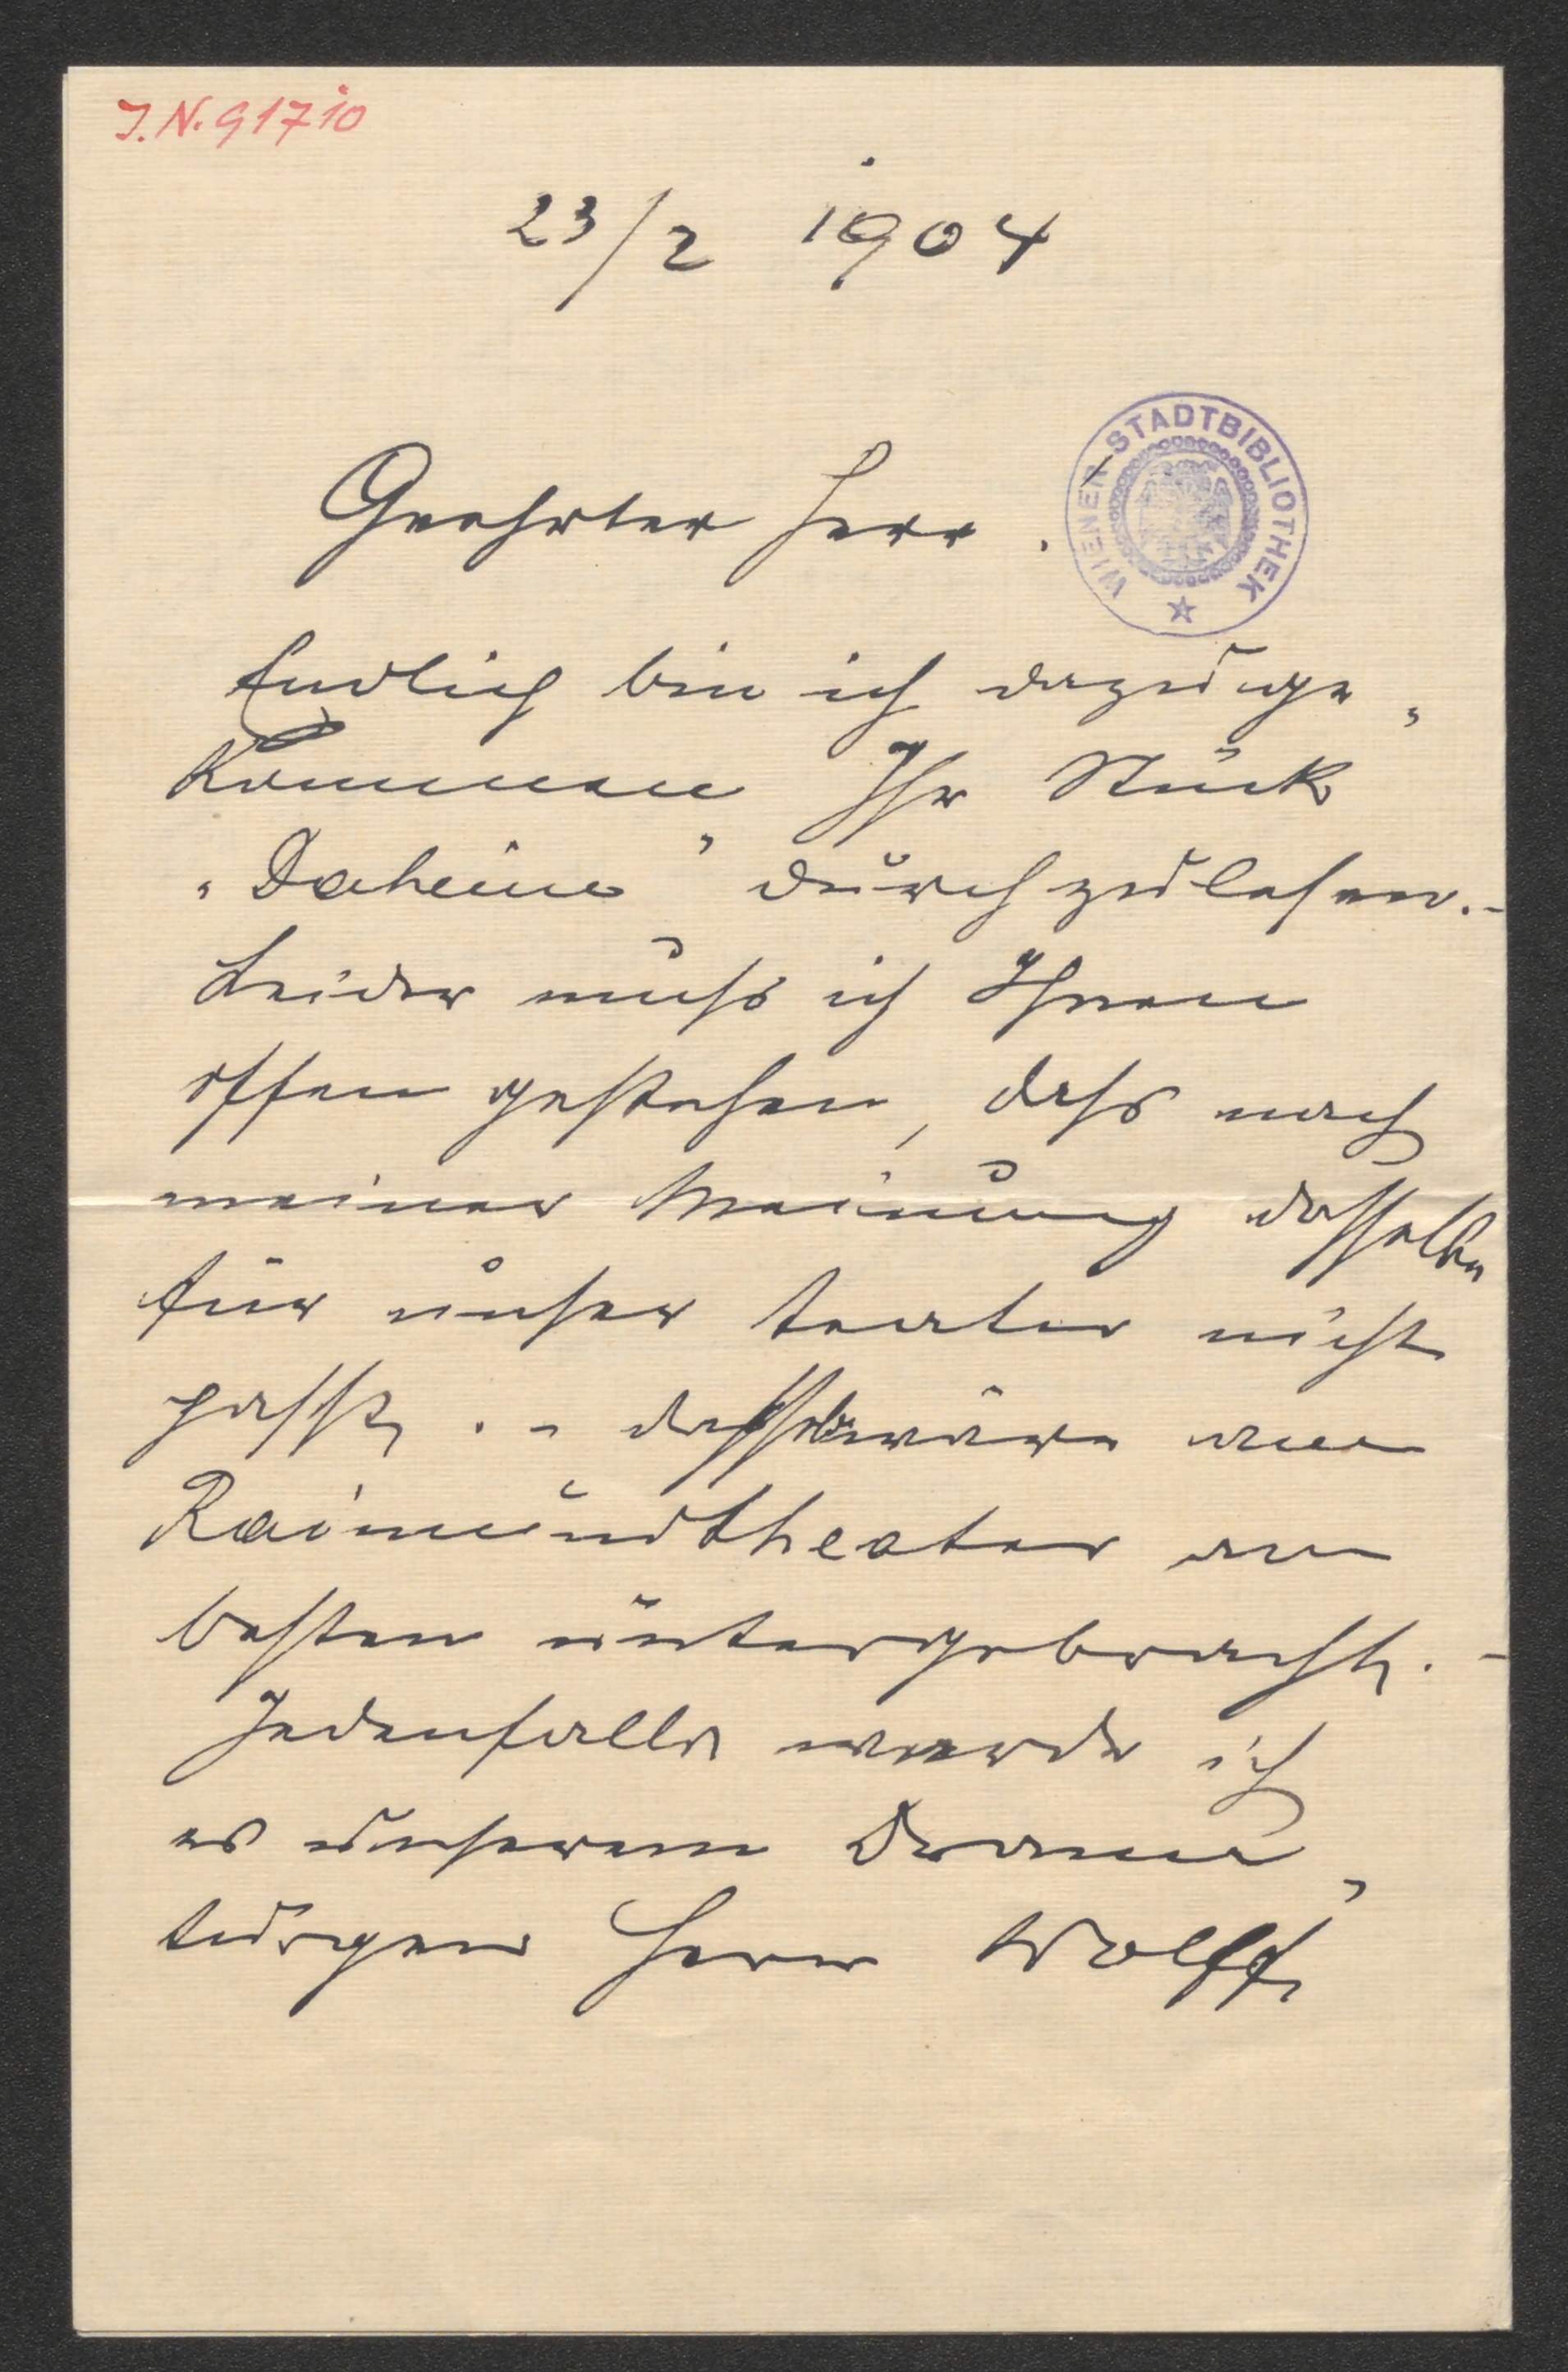 J.N. 91710
23/2 1904
WIENER STADTBIBLIOTHEK
Geehrter Herr.
Endlich bin ich dazuge-
kommen Ihr Stück
"Daheim" durchzulesen.-
Leider muß ich Ihnen
offen gestehen, daß nach
meiner Meinung dasselbe
für unser Teater nicht
passt. - dasselbe wäre am
Raimundtheater am
besten untergebracht. -
Jedenfalls werde ich
es unserem Drama-
turgen Herrn Wolff